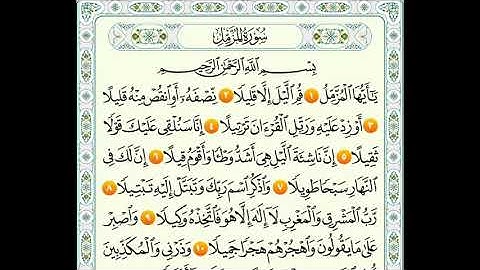 سُورَةُ المُزَّمِّلِ
بِسْمِ اللَّهِ الرَّحْمَٰنِ الرَّحِيمِ
يَٰٓأَيُّهَا الْمُزَّمِّلُ ١ قُمِ الَّيْلَ إِلَّا قَلِيلًا ٢ نِّصْفَهُۥٓ أَوِ انقُصْ مِنْهُ قَلِيلًا
٣ أَوْ زِدْ عَلَيْهِ وَرَتِّلِ الْقُرْءَانَ تَرْتِيلًا ٤ إِنَّا سَنُلْقِى عَلَيْكَ قَوْلًا
ثَقِيلًا ٥ إِنَّ نَاشِئَةَ الَّيْلِ هِىَ أَشَدُّ وَطْـًٔا وَأَقْوَمُ قِيلًا ٦ إِنَّ لَكَ فِى
النَّهَارِ سَبْحًا طَوِيلًا ٧ وَاذْكُرِ اسْمَ رَبِّكَ وَتَبَتَّلْ إِلَيْهِ تَبْتِيلًا ٨
رَّبُّ الْمَشْرِقِ وَالْمَغْرِبِ لَآ إِلَٰهَ إِلَّا هُوَ فَاتَّخِذْهُ وَكِيلًا ٩ وَاصْبِرْ
عَلَىٰ مَا يَقُولُونَ وَاهْجُرْهُمْ هَجْرًا جَمِيلًا ١٠ وَذَرْنِى وَالْمُكَذِّبِينَ